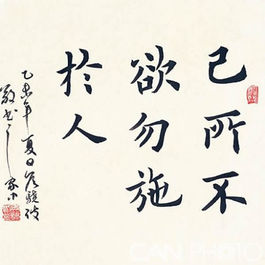 己所不
欲勿施
於人
乙未年夏日
CANPHOTO